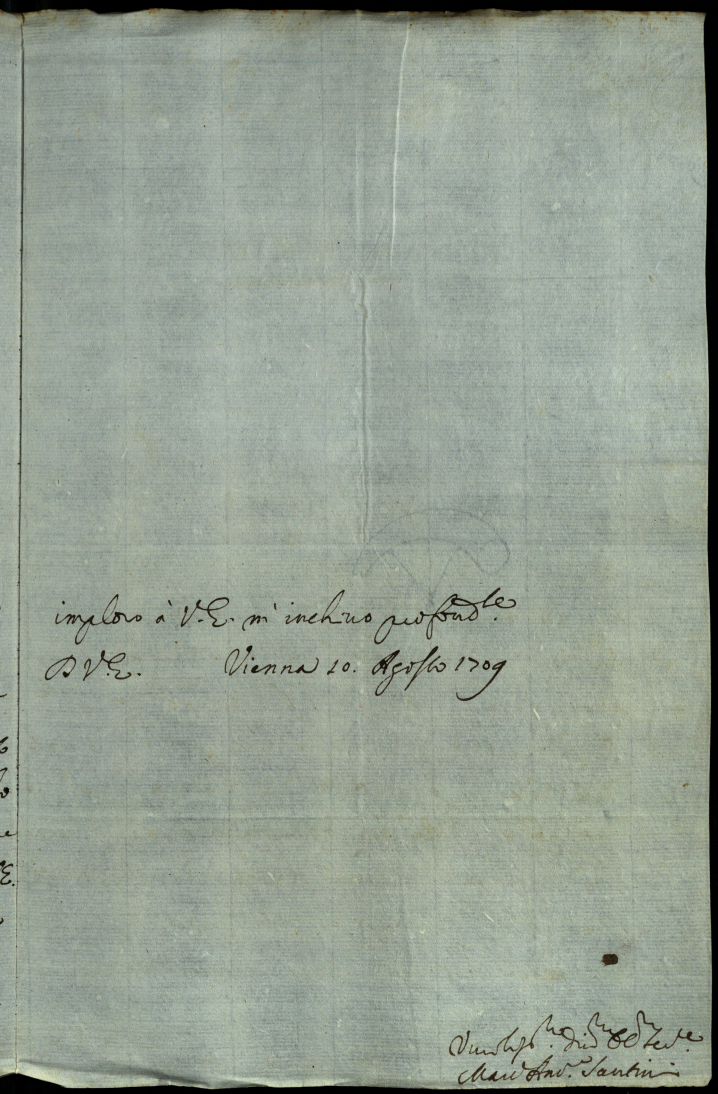 imploro à V.E. m'inchino profond.te
D V.E. Vienna 10. Agosto 1709
Umiliss.mo Div.mo Obb.mo Ser.e
Marc'Ant.o Santini